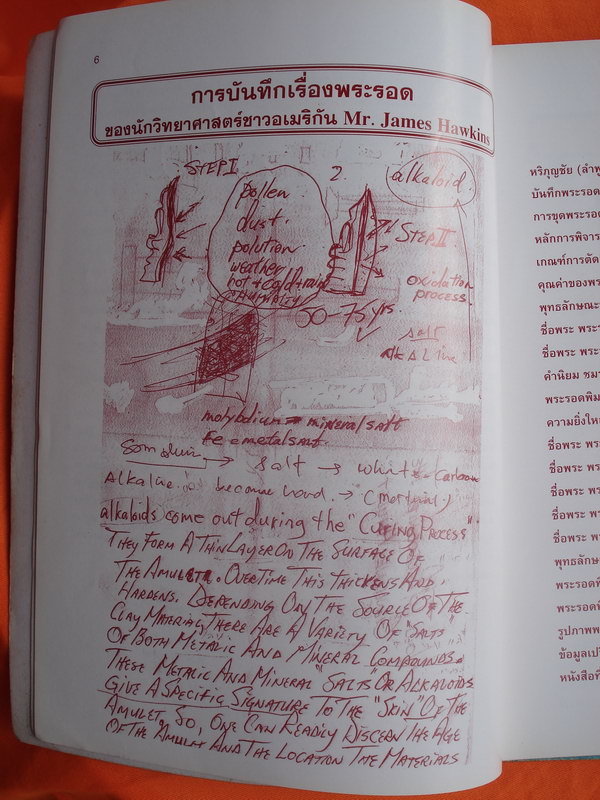 6
การบันทึกเรื่องพระรอด
ของนักวิทยาศาสตร์ชาวอเมริกัน Mr. James Hawkins
STEP I
pollen
dust.
polution
weather
hot + cold + rain
HUMIDITY
2.
alkaloid
STEP II
oxidation
process.
50-75 yrs.
salt
molybdium mineral salt
Fe metal salt.
salt → white
become hard. →
alkaloids come out during the "CURING PROCESS"
THEY FORM A THIN LAYER ON THE SURFACE OF
THE AMULETE. OVERTIME THIS THICKENS AND
HARDENS. DEPENDING ON THE SOURCE OF THE
CLAY MATERIAL, THERE ARE A VARIETY OF "SALTS"
OF BOTH METALIC AND MINERAL COMPOUNDS.
THESE METALIC AND MINERAL "SALTS" OR ALKALOIDS
GIVE A SPECIFIC SIGNATURE TO THE "SKIN" OF THE
AMULET. SO, ONE CAN READILY DISCERN THE AGE
OF THE AMULET AND THE LOCATION THE MATERIALS
หริภุญชัย (ลำพู
บันทึกพระรอด
การขุดพระรอด
หลักการพิจาร
เกณฑ์การตัด
คุณค่าของพร
พุทธลักษณะ
ชื่อพระ พระ
ชื่อพระ พระ
คำนิยม ชมร
พระรอดพิม
ความยิ่งให
ชื่อพระ พร
ชื่อพระ พร
ชื่อพระ พร
ชื่อพระ พร
ชื่อพระ พร
พุทธลักษ
พระรอดพิ
พระรอดพิ
รูปภาพพ
ข้อมูลเปรี
หนังสือที่